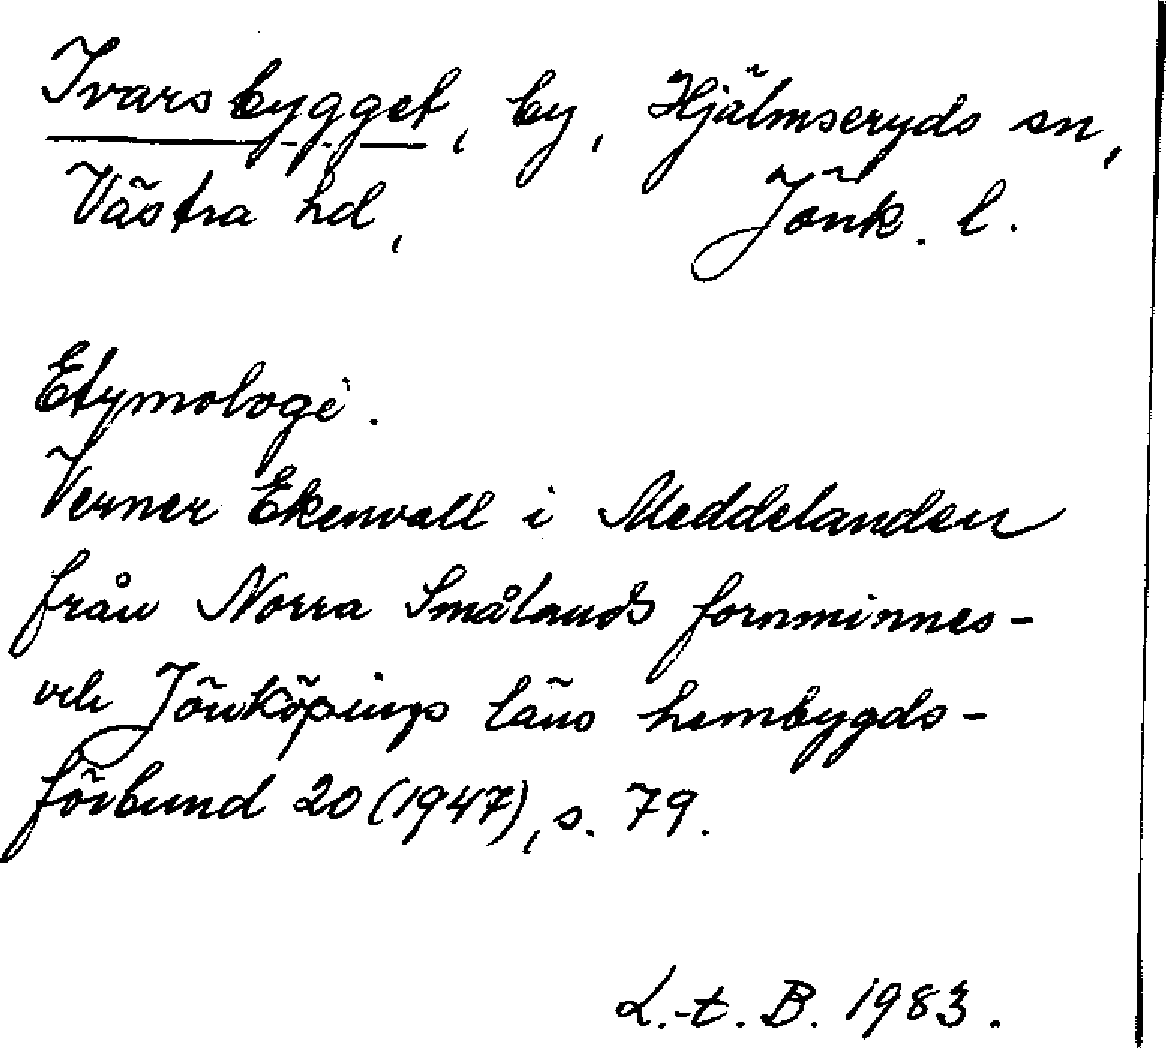 Ivarsbygget, by, Hjälmseryds sn,
Västra hd, Jönk. l.
Etymologi.
Verner Ekenvall i Meddelanden
från Norra Smålands fornminnes-
och Jönköpings läns hembygds-
förbund 20 (1947), s. 79.
L.-t. B. 1983.